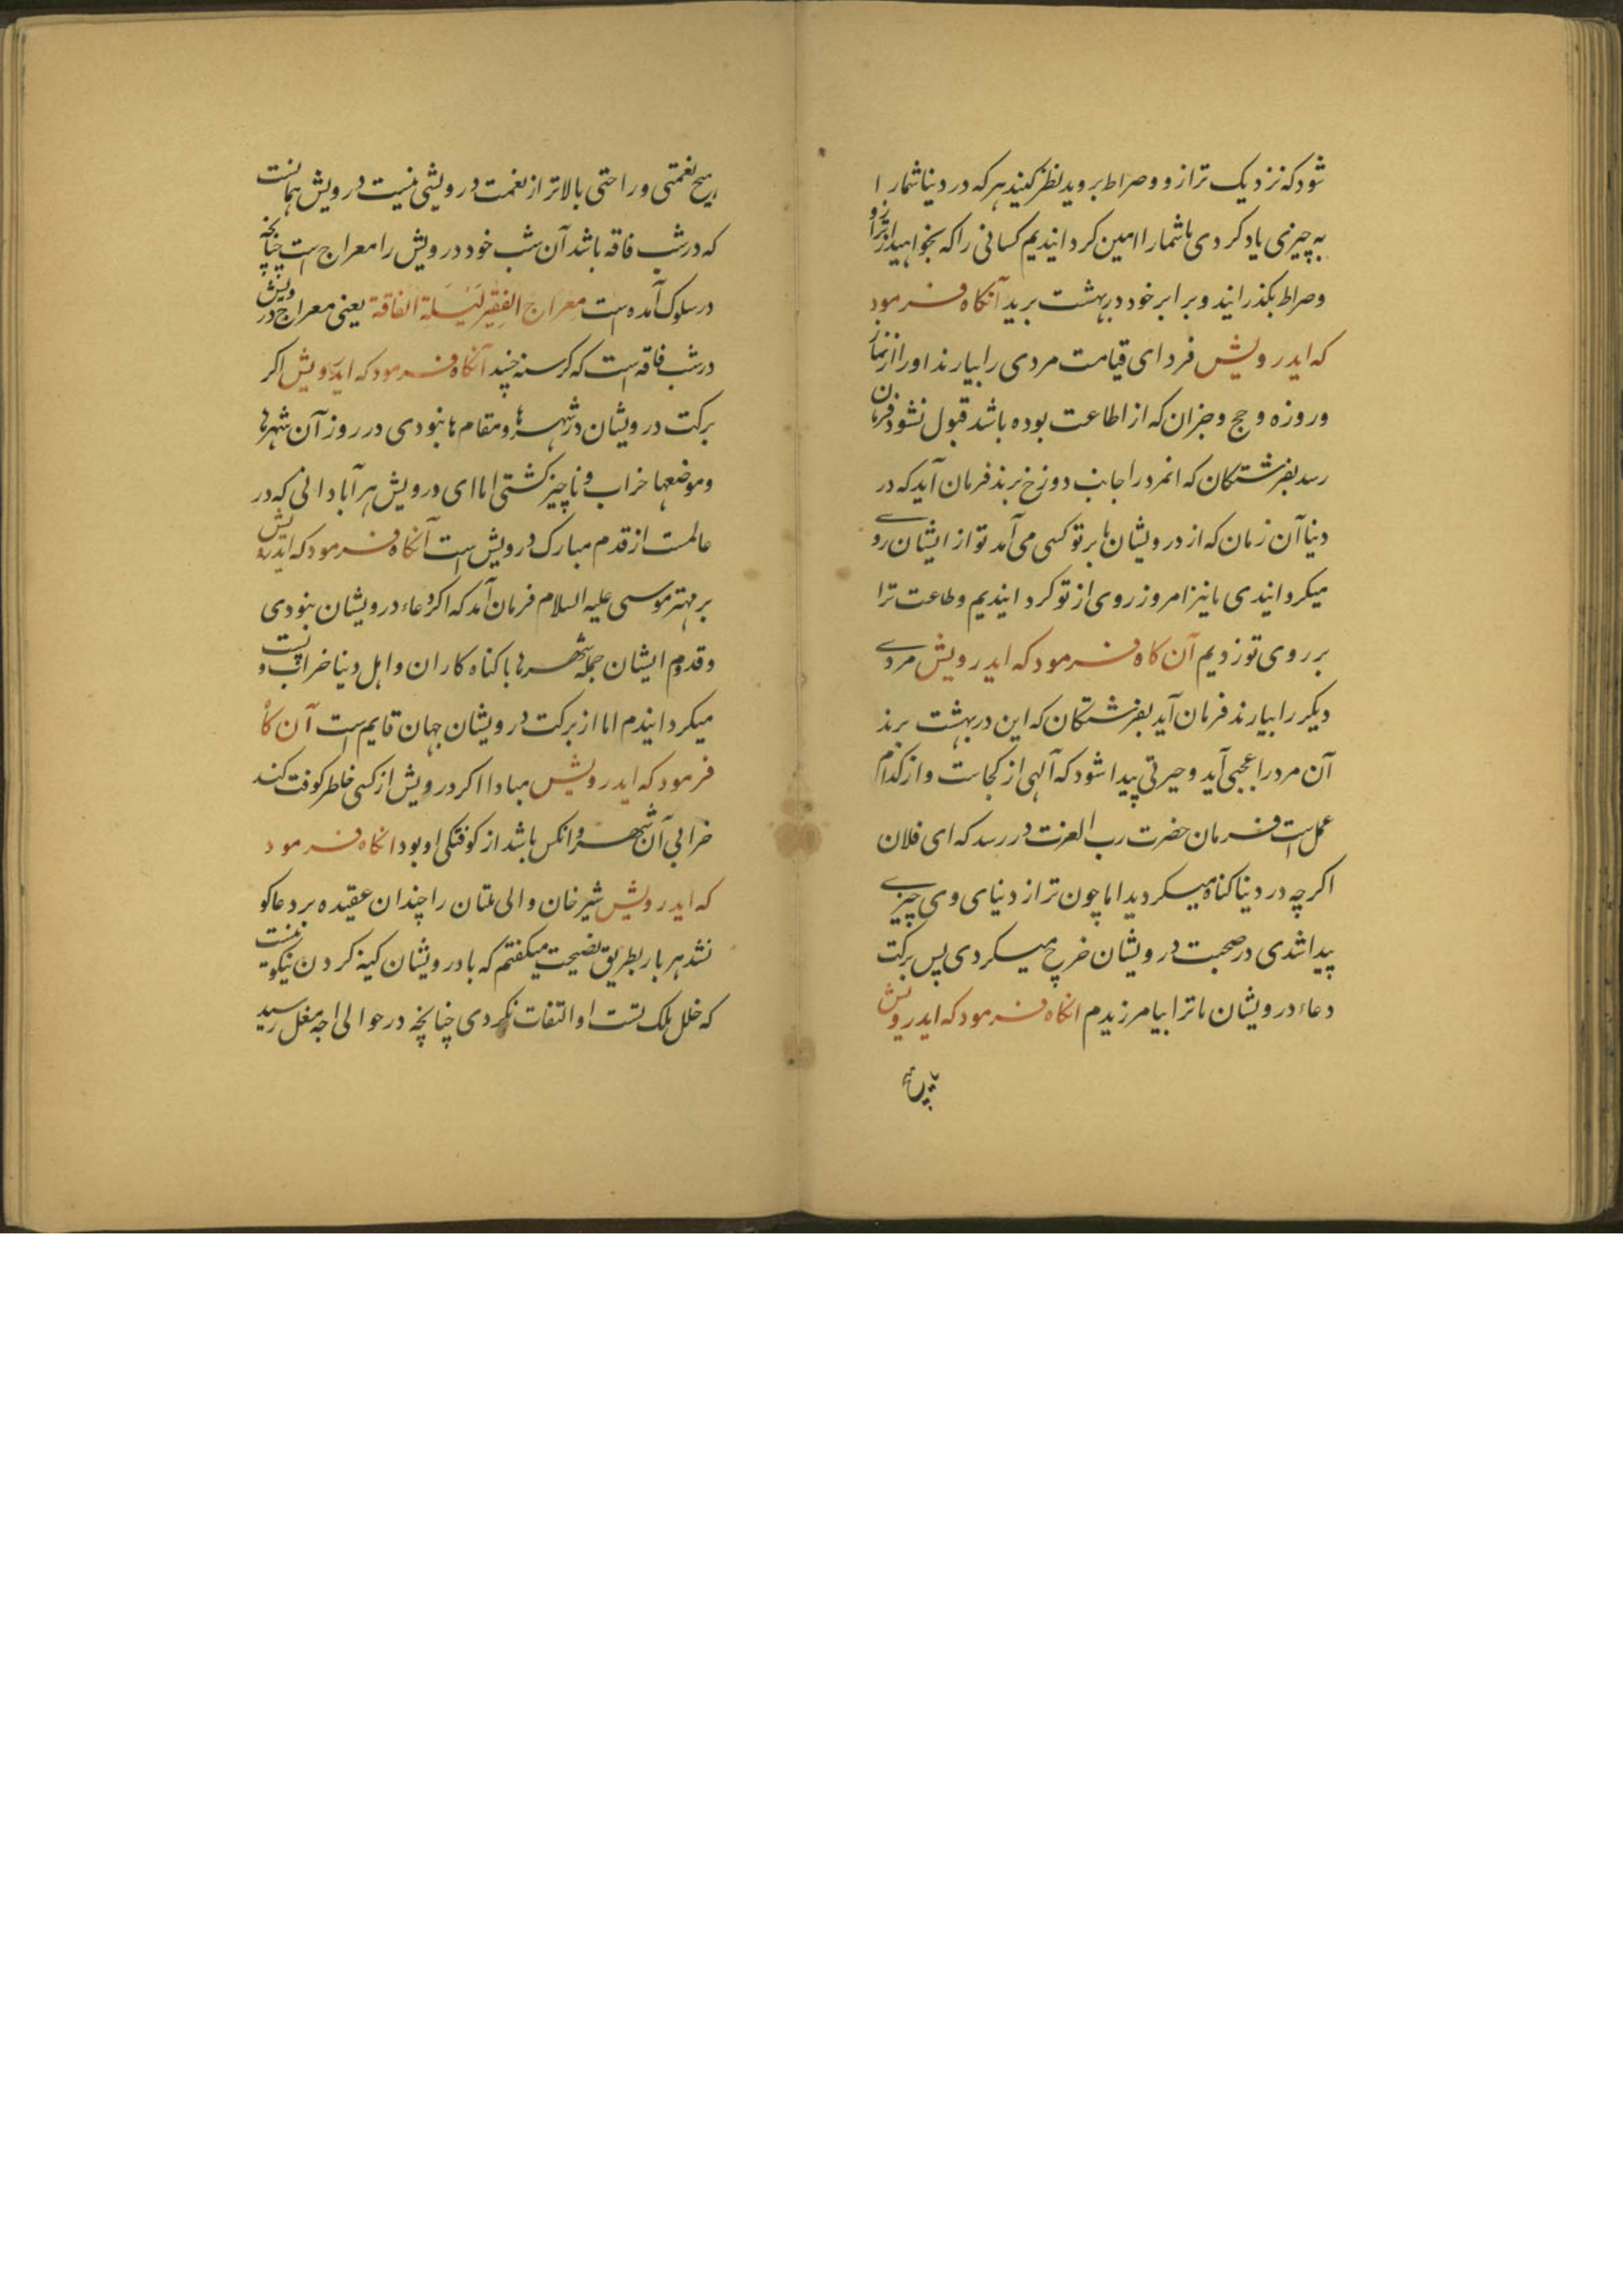 شود که نزدیک ترازو و صراط بروید نظر کنید هر که در دنیا شما را
به چیزی یاد کردی ما شما را امین کردانیدیم کسانی را که بخواهید از ترازو
و صراط بکذرانید و برابر خود در بهشت برید آنکاه فرمود
که ایدرویش فردای قیامت مردی را بیارند او را از نماز
و روزه و حج و جزان که از اطاعت بوده باشد قبول نشود فرمان
رسد بفرشتکان که انمرد را جانب دوزخ برند فرمان آید که در
دنیا آن زمان که از درویشان ما بر تو کسی می آمد تو از ایشان روی
میکردانیدی ما نیز امروز روی از تو کردانیدیم و طاعت ترا
بر روی تو زدیم آن کاه فرمود که ایدرویش مردی
دیکر را بیارند فرمان آید بفرشتکان که این در بهشت برند
آن مرد را عجبی آید و حیرتی پیدا شود که آلهی از کجاست و از کدام
عمل است فرمان حضرت رب العزت در رسد که ای فلان
اکرچه در دنیا کناه میکردید اما چون ترا از دنیای وی چیزی
پیدا شدی در صحبت درویشان خرج میکردی پس برکت
دعاء درویشان ما ترا بیامرزیدم انکاه فرمود که ایدرویش
هیچ نعمتی و راحتی بالاتر از نعمت درویشی نیست درویش همانست
که در شب فاقه باشد آن شب خود درویش را معراج است چنانچه
در سلوک آمده است معراج الفقیر لیلة الفاقة یعنی معراج درویش
در شب فاقه است که کرسنه خپند آنکاه فرمود که ایدرویش اکر
برکت درویشان در شهرها و مقام ها نبودی در روز آن شهرها
و موضعها خراب و ناچیز کشتی اما ای درویش هر آبادانی که در
عالمست از قدم مبارک درویش است آنکاه فرمود که ایدرویش
بر مهتر موسی علیه السلام فرمان آمد که اکر دعاء درویشان نبودی
و قدوم ایشان جمله شهرها با کناه کاران و اهل دنیا خراب و پست
میکردانیدم اما از برکت درویشان جهان قایم است آن کاه
فرمود که ایدرویش مبادا اکر درویش از کسی خاطر کوفت کند
خرابی آن شهر و انکس باشد از کوفتکی او بود انکاه فرمود
که ایدرویش شیر خان والی ملتان را چندان عقیده بر دعا کو
نشد هر بار بطریق نصیحت میکفتم که با درویشان کینه کردن نیکو نیست
که خلل ملک تست او التفات نکردی چنانچه در حوالی اجه مغل رسید